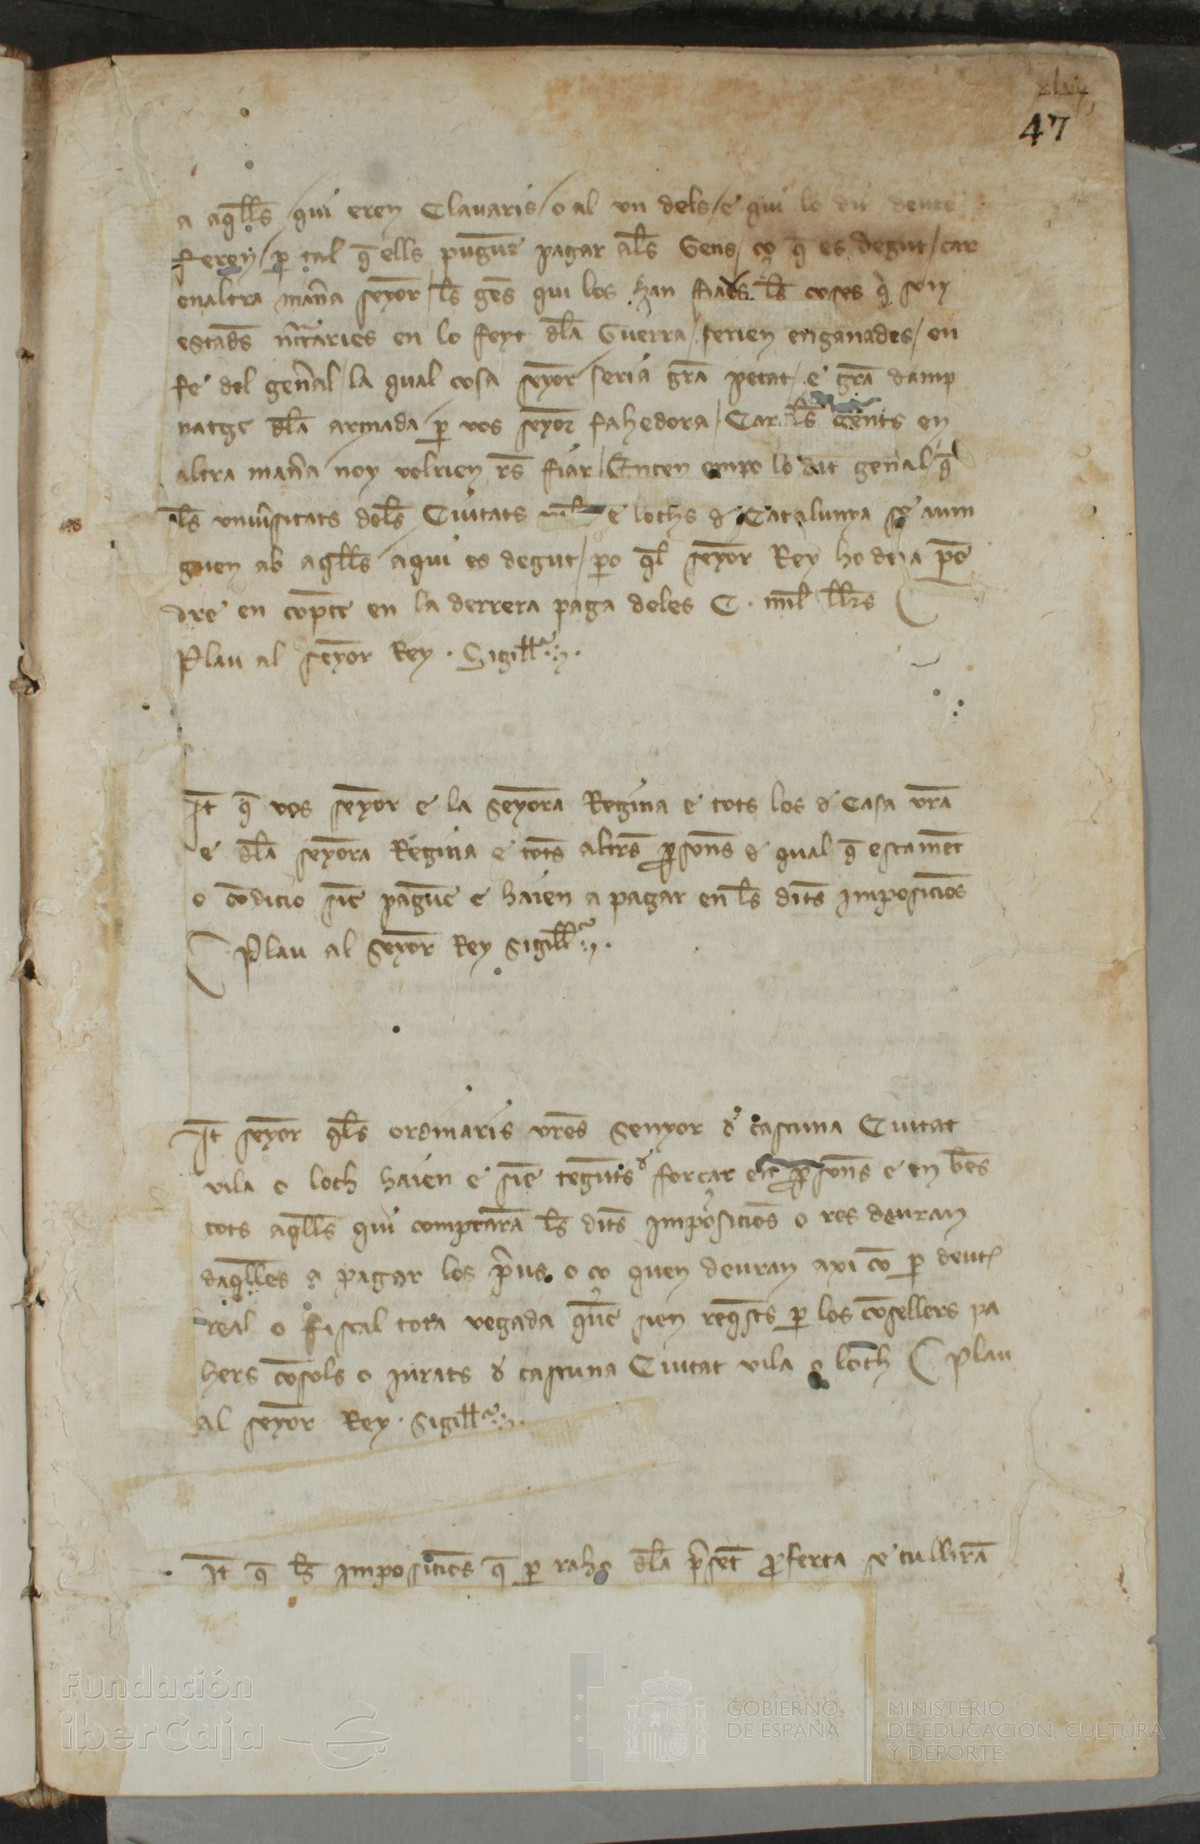 47
a aq̄lls̄ qui eren Clauaris / o al un dels / e qui lo dit deute
feren / p̱ tal q̄ ells pugūe pagar als̄ Gens / ço q̄ es degut / car
en altra man̄a seyōr / ls̄ gēs qui los han fiads ls̄ coses q̄ son
estads̄ nc̄c̄aries en lo feyt dl̄a Guerra / serien enganades / en
fe del gen̄al / la qual cosa seyōr seria grā pecat / e grā damp
natge dl̄a armada p̱ vos seyōr fahedora / Car ls̄ gents en
altra man̄a noy volrien rs̄ fiar / Enten empo lo dit gen̄al / q̄
ls̄ univ̄sitats dels̄ Ciutats e lochs d Catalunya se auin
guen ab aq̄lls̄ aqui es degut / po ql̄ seyōr Rey ho deia pē
dre en cōpte en la derrera paga deles C . mil̄ llr̄s
Plau al seyōr Rey . Sigill̄
It̄ q̄ vos seyōr e la seyōra Regina e tots los d Casa vrā
e dl̄a seyōra Regina e tots̄ altrs̄ p̱sons̄ d qual q̄ estamēt
o cōdicio siē pagūe e haien a pagar en ls̄ dits̄ imposiciōs
Plau al Seyōr Rey Sigill̄
It̄ seyōr qls̄ ordinaris vrēs senyor d cascuna Ciutat
vila o loch haien e siē tenguts̄ d forçar en p̱sons̄ e en bēs
tots aq̄lls̄ qui comprarā ls̄ dits̄ imposiciōs o res deuran
daq̄lles a pagar los p̄us o ço quen deuran axi cō p̱ deute
real o fiscal tota vegada quē sien req̄sts p̱ los cōsellers pa
hers cōsols o jurats d cascuna Ciutat vila o loch Plau
al seyōr Rey . Sigill̄
It̄ q̄ ls̄ imposiciōs q̄ p̱ raho dl̄a p̄sēt p̱ferta se cullirā
Fundación
iberCaja
GOBIERNO
DE ESPAÑA
MINISTERIO
DE EDUCACIÓN, CULTURA
Y DEPORTE